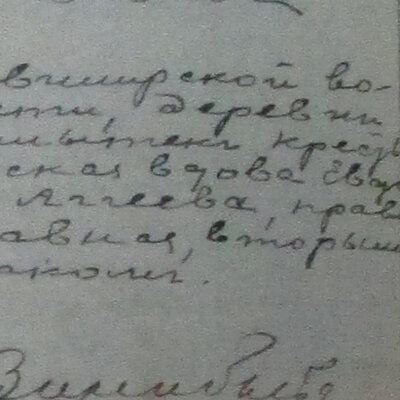 вширской во-
сти, деревни
крестья
ская вдова Евд
Аггеева, прав
авная, вторым
аком.